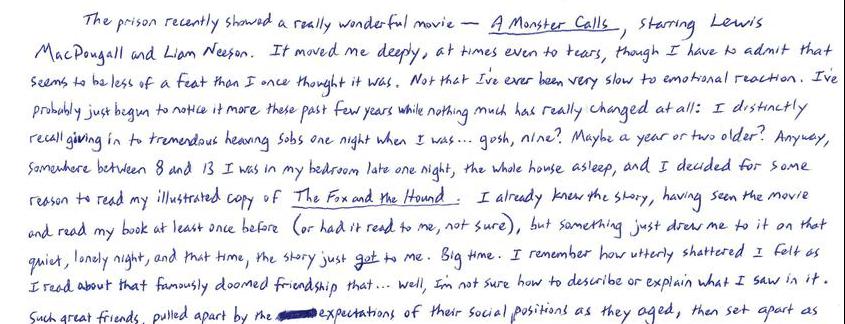 The prison recently showed a really wonderful movie — A Monster Calls, starring Lewis
MacDougall and Liam Neeson. It moved me deeply, at times even to tears, though I have to admit that
seems to be less of a feat than I once thought it was. Not that I've ever been very slow to emotional reaction. I've
probably just begun to notice it more these past few years while nothing much has really changed at all: I distinctly
recall giving in to tremendous heaving sobs one night when I was... gosh, nine? Maybe a year or two older? Anyway,
somewhere between 8 and 13 I was in my bedroom late one night, the whole house asleep, and I decided for some
reason to read my illustrated copy of The Fox and the Hound. I already knew the story, having seen the movie
and read my book at least once before (or had it read to me, not sure), but something just drew me to it on that
quiet, lonely night, and that time, the story just got to me. Big time. I remember how utterly shattered I felt as
I read about that famously doomed friendship that... well, I'm not sure how to describe or explain what I saw in it.
Such great friends, pulled apart by the expectations of their social positions as they aged, then set apart as